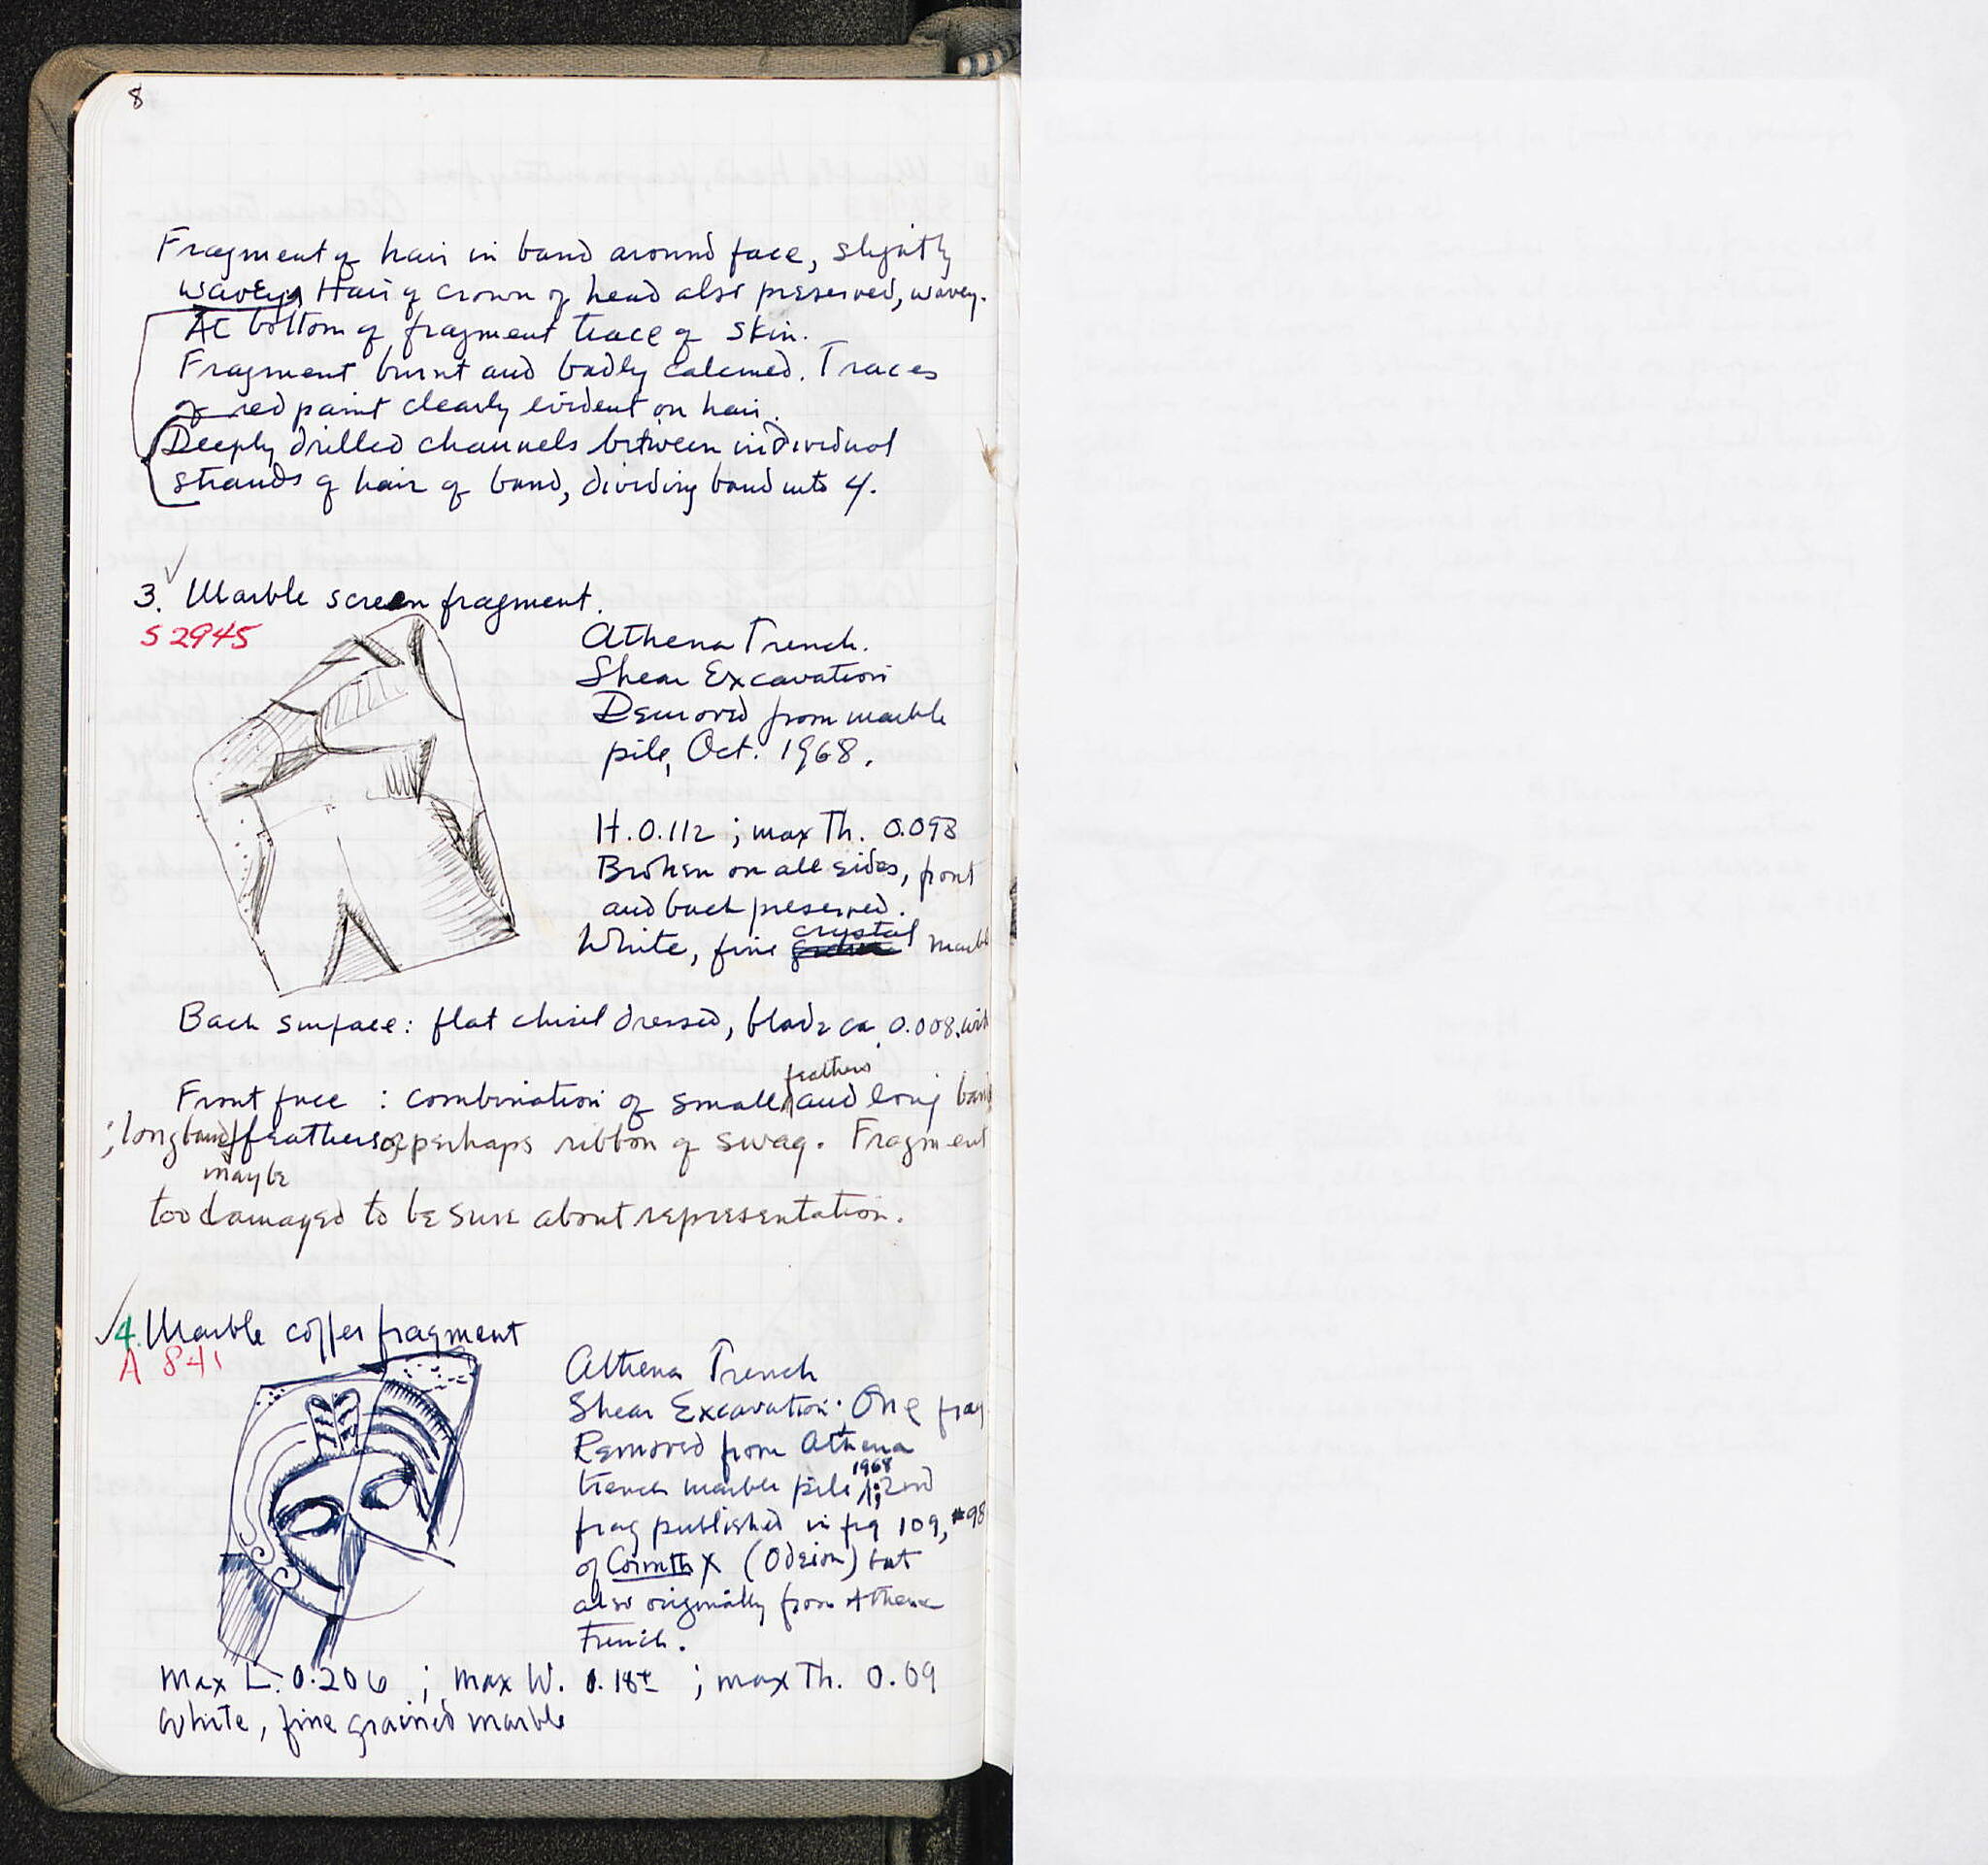 8
Fragment of hair in band around face, slightly
wavey, Hair of crown of head also preserved, wavey.
At bottom of fragment trace of skin.
Fragment burnt and badly calcined. Traces
of red paint clearly evident on hair.
Deeply drilled channels between individual
strands of hair of band, dividing band into 4.
3. Marble screen fragment.
S 2945
Athena Trench.
Shear Excavation
Removed from marble
pile, Oct. 1968.
H. 0.112 ; max Th. 0.093
Broken on all sides, front
and back preserved.
White, fine crystal marbl
Back surface: flat chisel dressed, blade ca 0.008, wid
feathers
Front face : combination of small and long band
; long band feathers or perhaps ribbon of swag. Fragment
maybe
too damaged to be sure about representation.
4. Marble coffer fragment
A 841
Athena Trench
Shear Excavation. One frag
Removed from Athena
trench marble pile 1968; 2nd
frag published in fig 109, #98
of Corinth X (Odeion) but
also originally from Athena
Trench.
Max L. 0.206 ; Max W. 0.18± ; max Th. 0.09
White, fine grained marble